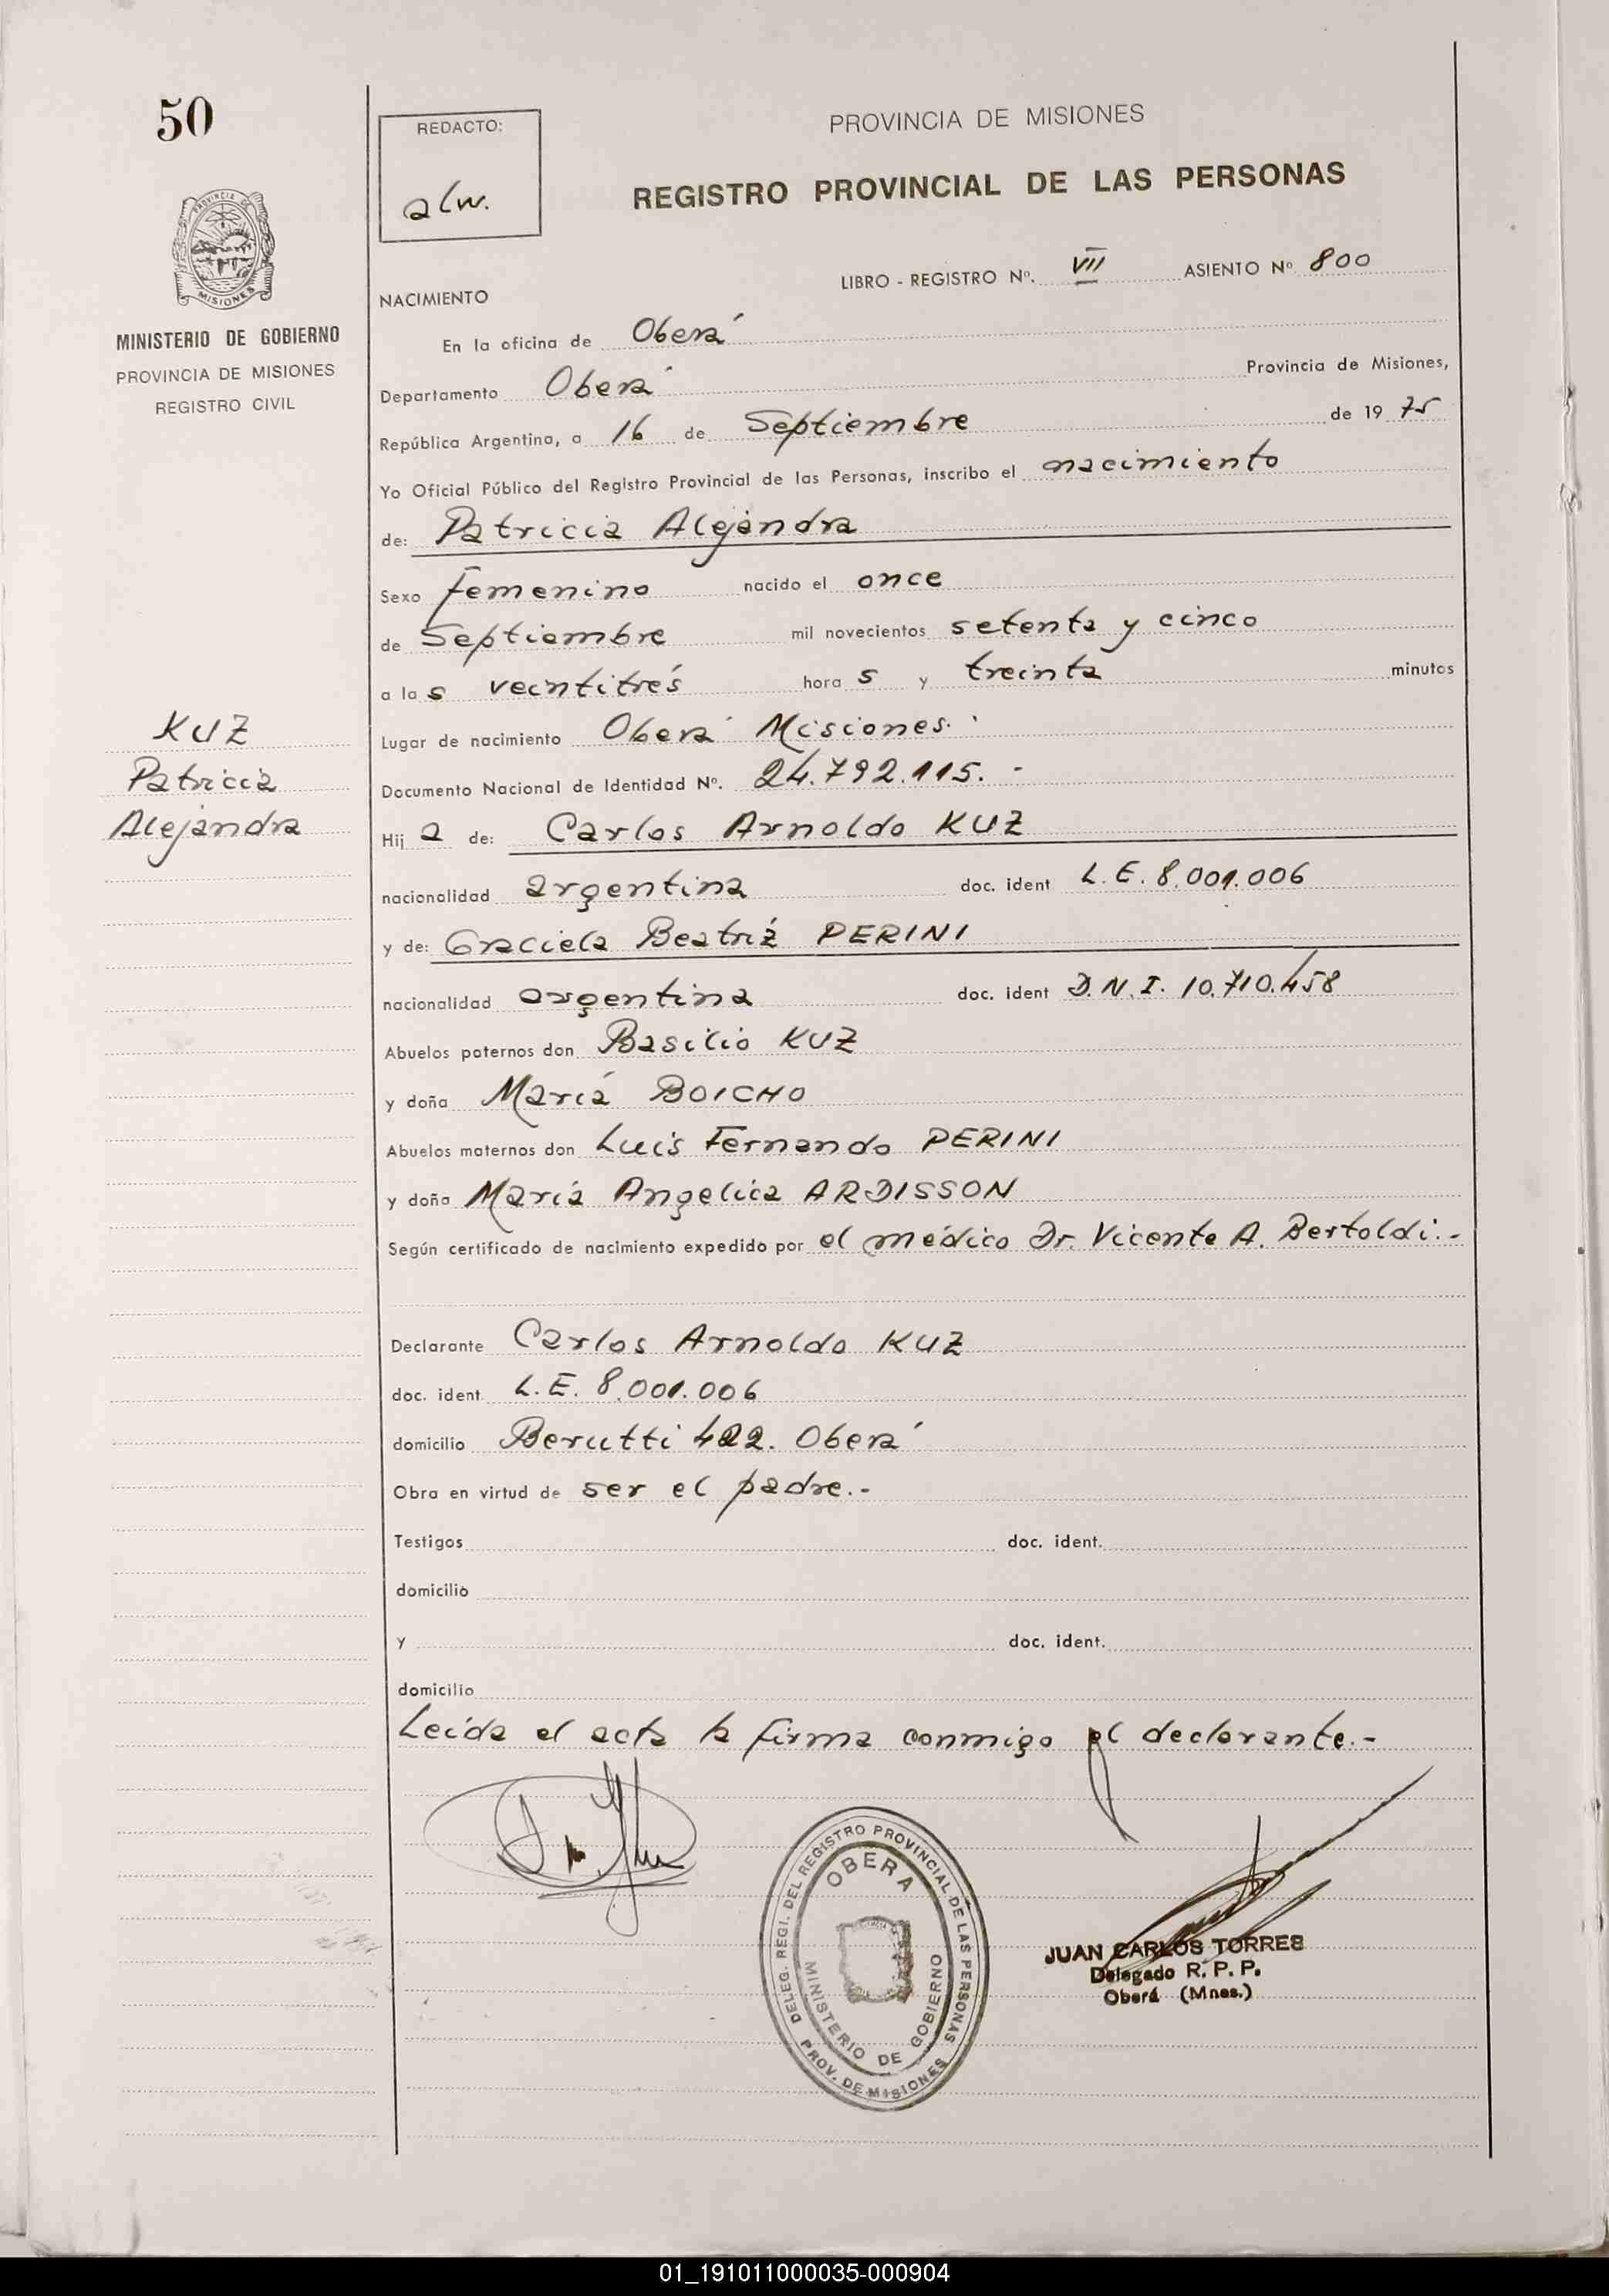 50
REDACTO:
alw.
PROVINCIA DE MISIONES
REGISTRO PROVINCIAL DE LAS PERSONAS
PROVINCIA DE
MISIONES
MINISTERIO DE GOBIERNO
PROVINCIA DE MISIONES
REGISTRO CIVIL
LIBRO - REGISTRO Nº. VII ASIENTO Nº 800
NACIMIENTO
En la oficina de Oberá
Departamento Oberá Provincia de Misiones,
República Argentina, a 16 de Septiembre de 1975
Yo Oficial Público del Registro Provincial de las Personas, inscribo el nacimiento
de: Patricia Alejandra
Sexo Femenino nacido el once
de Septiembre mil novecientos setenta y cinco
a las veintitrés horas y treinta minutos
Lugar de nacimiento Oberá Misiones.
Documento Nacional de Identidad Nº. 24.792.115.-
KUZ
Patricia
Alejandra
Hija de: Carlos Arnoldo KUZ
nacionalidad argentina doc. ident L.E. 8.001.006
y de: Graciela Beatriz PERINI
nacionalidad argentina doc. ident D.N.I. 10.710.458
Abuelos paternos don Basilio KUZ
y doña María BOICHO
Abuelos maternos don Luis Fernando PERINI
y doña María Angelica ARDISSON
Según certificado de nacimiento expedido por el médico Dr. Vicente A. Bertoldi.-
Declarante Carlos Arnoldo KUZ
doc. ident. L.E. 8.001.006
domicilio Berutti 422. Oberá
Obra en virtud de ser el padre.-
Testigos doc. ident.
domicilio
y doc. ident.
domicilio
Leída el acta la firma conmigo el declarante.-
DELEG. REGI. DEL REGISTRO PROVINCIAL DE LAS PERSONAS
OBERA
MINISTERIO DE GOBIERNO
PROV. DE MISIONES
JUAN CARLOS TORRES
Delegado R. P. P.
Oberá (Mnes.)
01_191011000035-000904